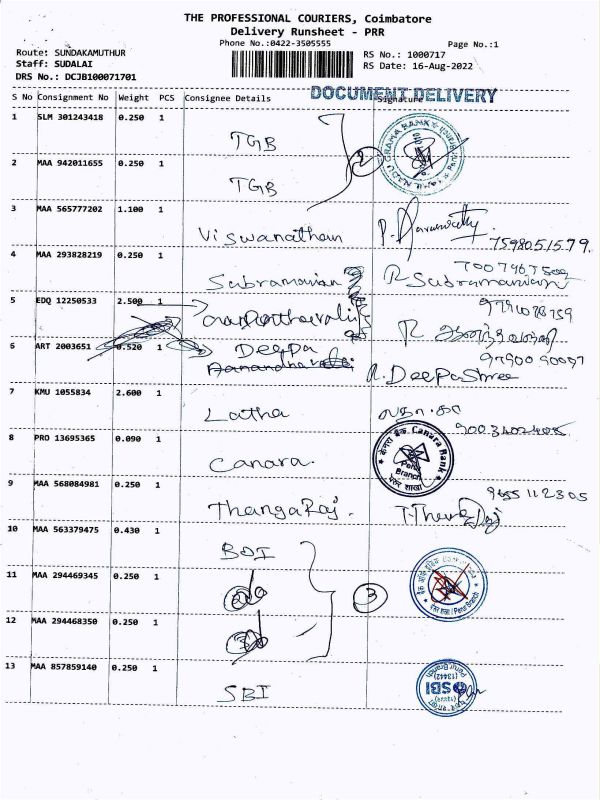 THE PROFESSIONAL COURIERS, Coimbatore
Delivery Runsheet - PRR
Phone No.:0422-3505555
Page No.:1
Route: SUNDAKAMUTHUR
RS No.: 1000717
Staff: SUDALAI
RS Date: 16-Aug-2022
DRS No.: DCJB100071701
DOCUMENT DELIVERY
S No Consignment No Weight PCS Consignee Details Signature
1 SLM 301243418 0.250 1
TGB
2
2 MAA 942011655 0.250 1
TGB
3 MAA 565777202 1.100 1
Viswanathan
7598051579.
4 MAA 293828219 0.250 1
Subramanian
R Subramanian
5 EDQ 12250533 2.500 1
6 ART 2003651 0.520 1
Deepa
R. Deepashree
7 KMU 1055834 2.600 1
Latha
லதா
8 PRO 13695365 0.090 1
Canara.
Canara Bank
Perur
Branch
9 MAA 568084981 0.250 1
ThangaRaj.
10 MAA 563379475 0.430 1
BOI
11 MAA 294469345 0.250 1
3
Perur Branch
12 MAA 294468350 0.250 1
13 MAA 857859140 0.250 1
SBI
SBI
(13442)
Perur Branch